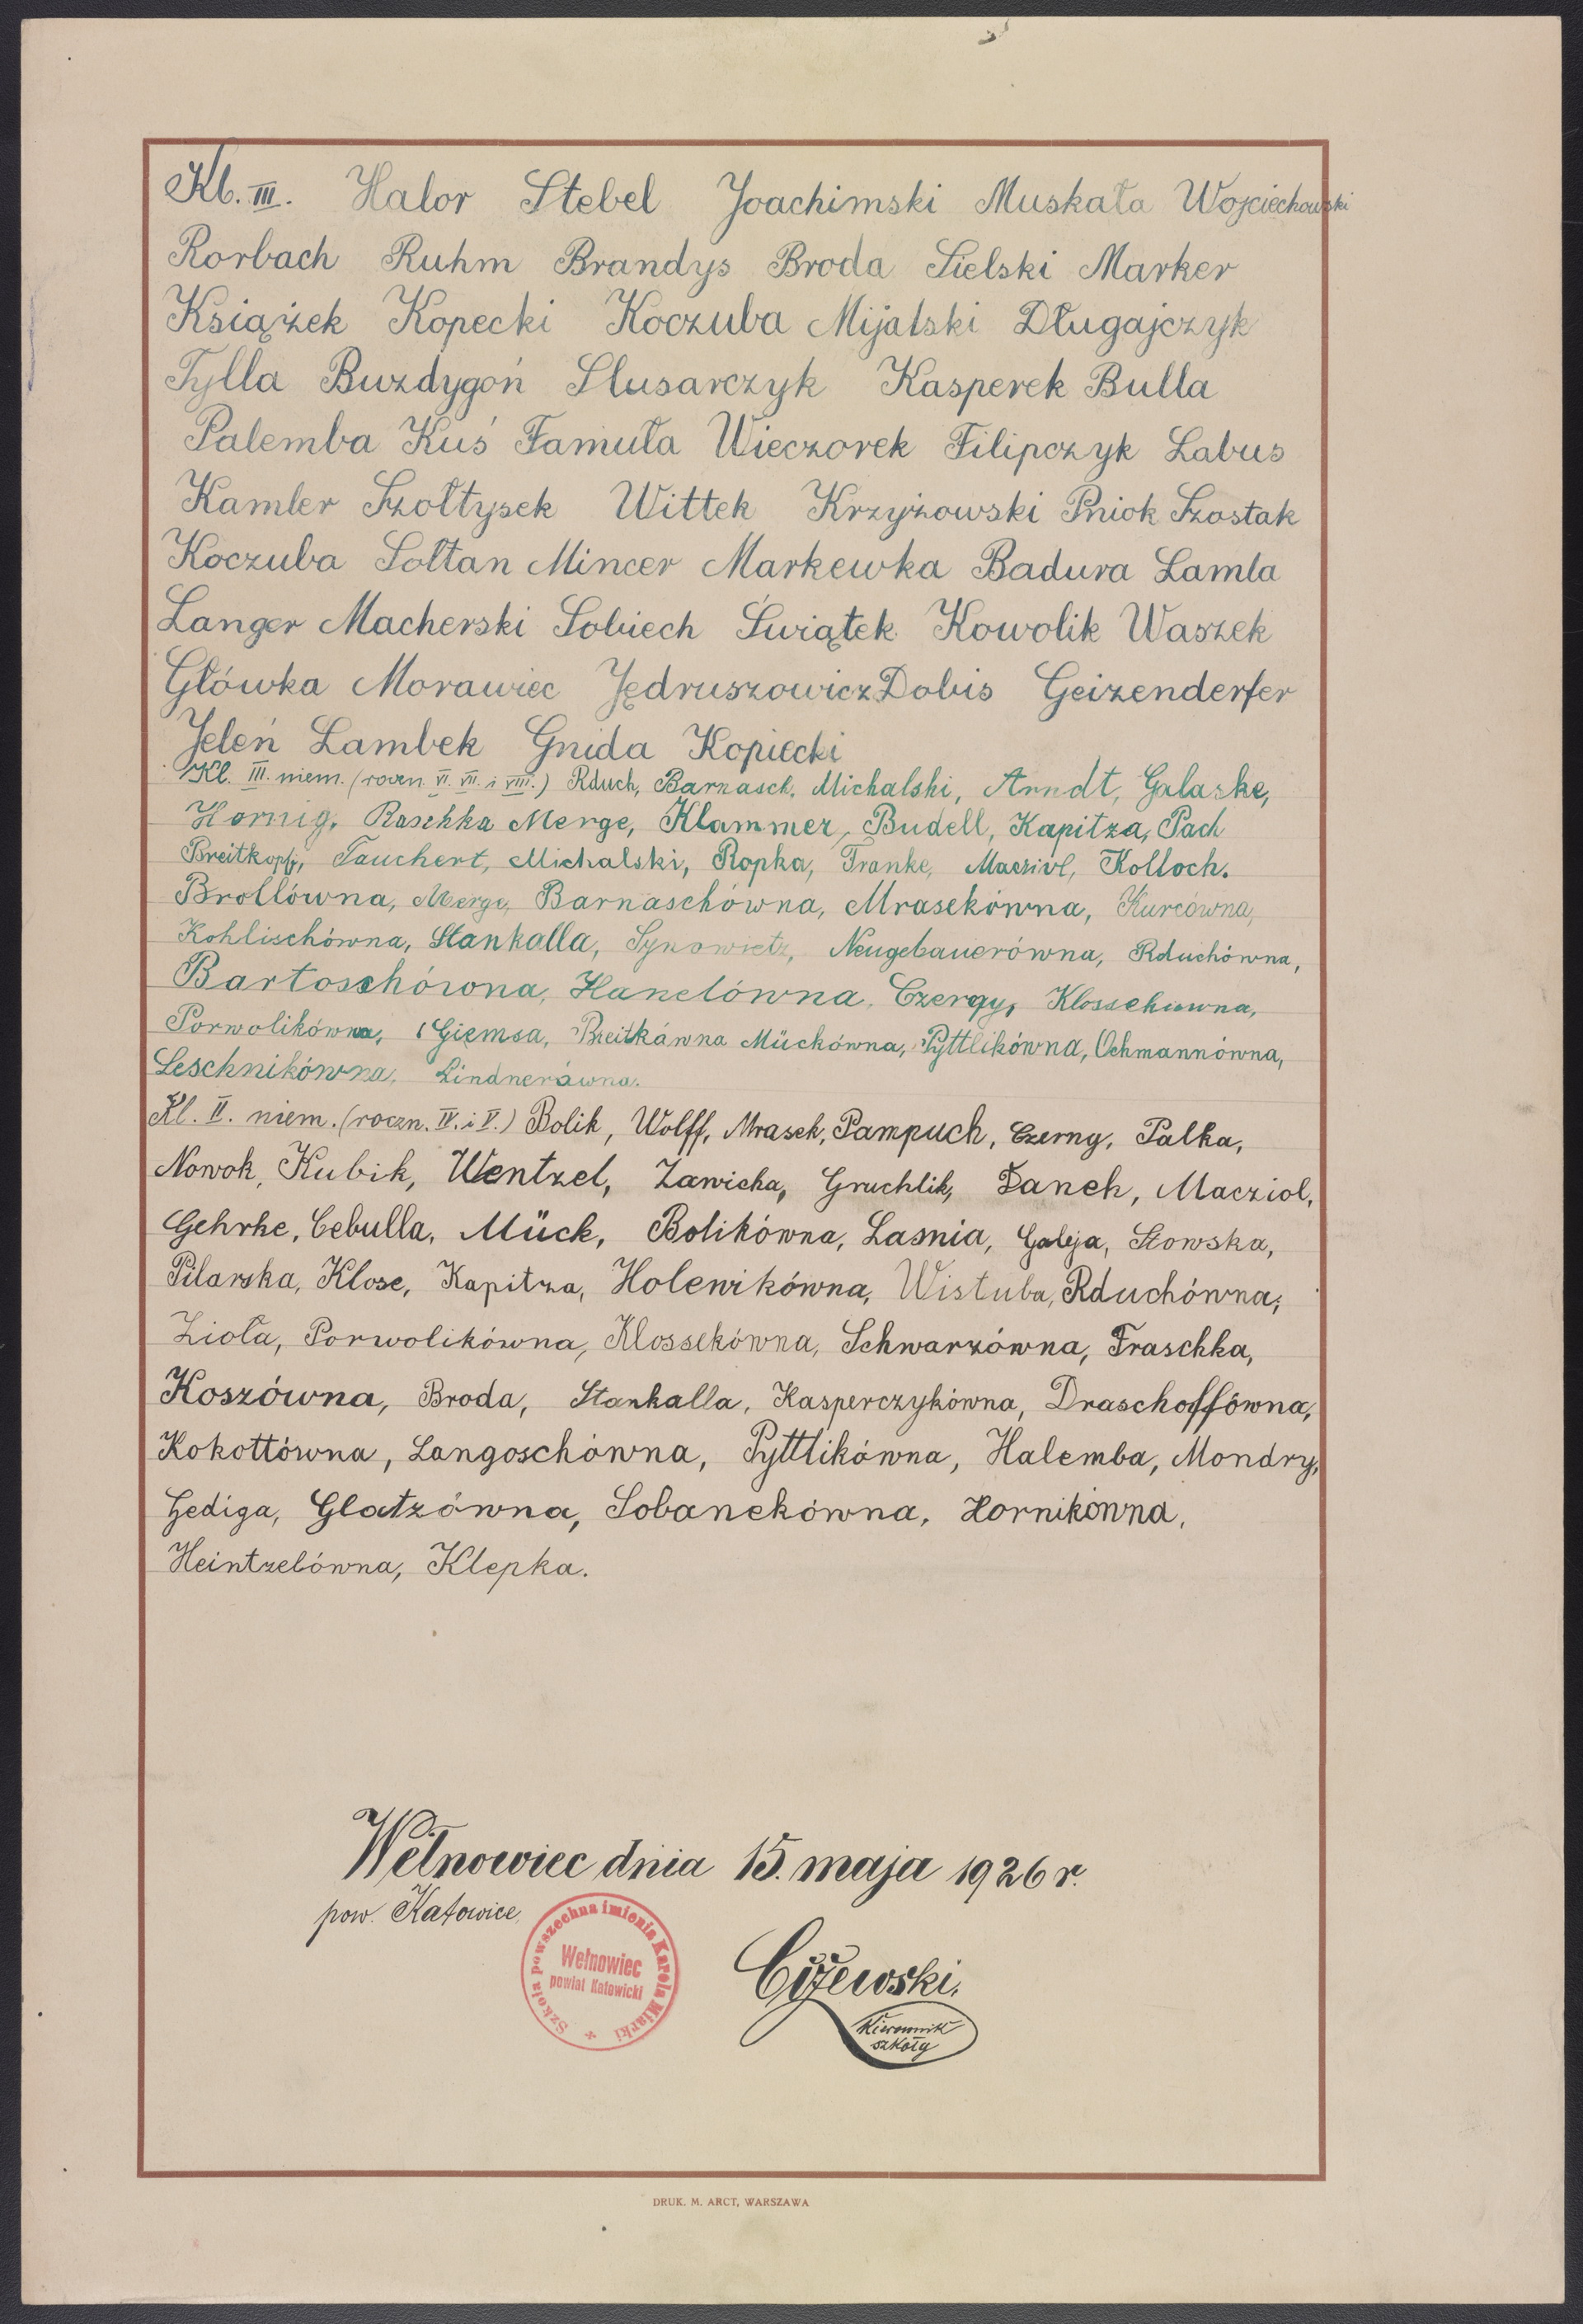 Kl. III. Halor Stebel Joachimski Muskała Wojciechowski
Rorbach Ruhm Brandys Broda Sielski Marker
Książek Kopecki Koczuba Mijalski Długajczyk
Tylla Buzdygoń Slusarczyk Kasperek Bulla
Palemba Kuś Famuła Wieczorek Filipczyk Labus
Kamler Szołtysek Wittek Krzyżowski Pniok Szostak
Koczuba Sołtan Mincer Markewka Badura Lamla
Langer Macherski Sobiech Świątek Kowolik Waszek
Główka Morawiec Jędruszowicz Dobis Geizenderfer
Jeleń Lambek Gnida Kopiecki
Kl. III. niem. (roczn. VI. VII. i VIII.) Rduch, Barnasch, Michalski, Arndt, Galaske,
Hornig, Raschka Merge, Klammer, Budell, Kapitza, Pach
Breitkopf, Tauchert, Michalski, Ropka, Franke, Macziol, Kolloch.
Brollówna, Merge, Barnaschówna, Mrasekówna, Kurcówna,
Kohlischówna, Stankalla, Synowietz, Neugebauerówna, Rduchówna,
Bartoschówna, Hanelówna, Klossekówna,
Porwolikówna, Giemsa, Breitkówna Mückówna, Pyttlikówna, Ochmannówna,
Leschnikówna, Lindnerówna.
Kl. II. niem. (roczn. IV. i V.) Bolik, Wolff, Mrasek, Pampuch, Czerny, Palka,
Nowok, Kubik, Wentzel, Zawicha, Gruchlik, Danch, Macziol,
Gehrke, Cebulla, Mück, Bolikówna, Lasnia, Galeja, Stowska,
Pilarska, Klose, Kapitza, Holewikówna, Wistuba, Rduchówna,
Zioła, Porwolikówna, Klossekówna, Schwarzówna, Fraschka,
Koszówna, Broda, Stankalla, Kasperczykówna, Draschoffówna,
Kokottówna, Langoschówna, Pyttlikówna, Halemba, Mondry,
Gediga, Glatzówna, Sobanekówna, Hornikówna,
Heintzelówna, Klepka.
Wełnowiec dnia 15. maja 1926 r.
pow. Katowice
Szkoła powszechna imienia Karola Miarki
Wełnowiec
powiat Katowicki
Cyżewski,
Kierownik
szkoły
DRUK. M. ARCT, WARSZAWA